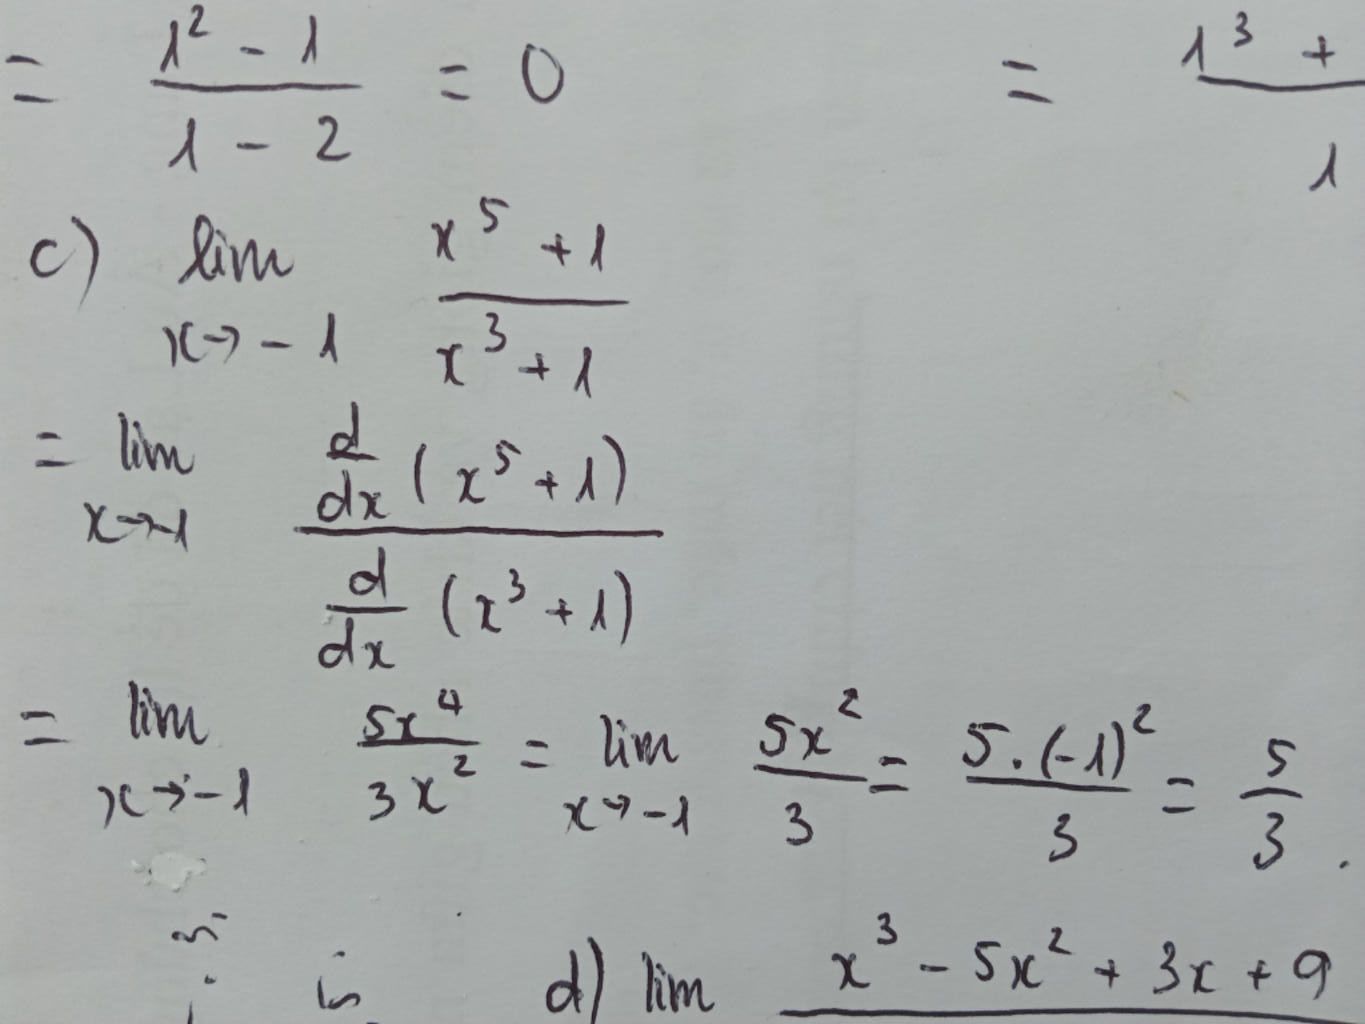 = (1² - 1)/(1 - 2) = 0
= 1³ +
1
c) lim x→-1 (x⁵ + 1)/(x³ + 1)
= lim x→-1 (d/dx (x⁵ + 1))/(d/dx (x³ + 1))
= lim x→-1 5x⁴/3x² = lim x→-1 5x²/3 = 5.(-1)²/3 = 5/3.
d) lim x³ - 5x² + 3x + 9